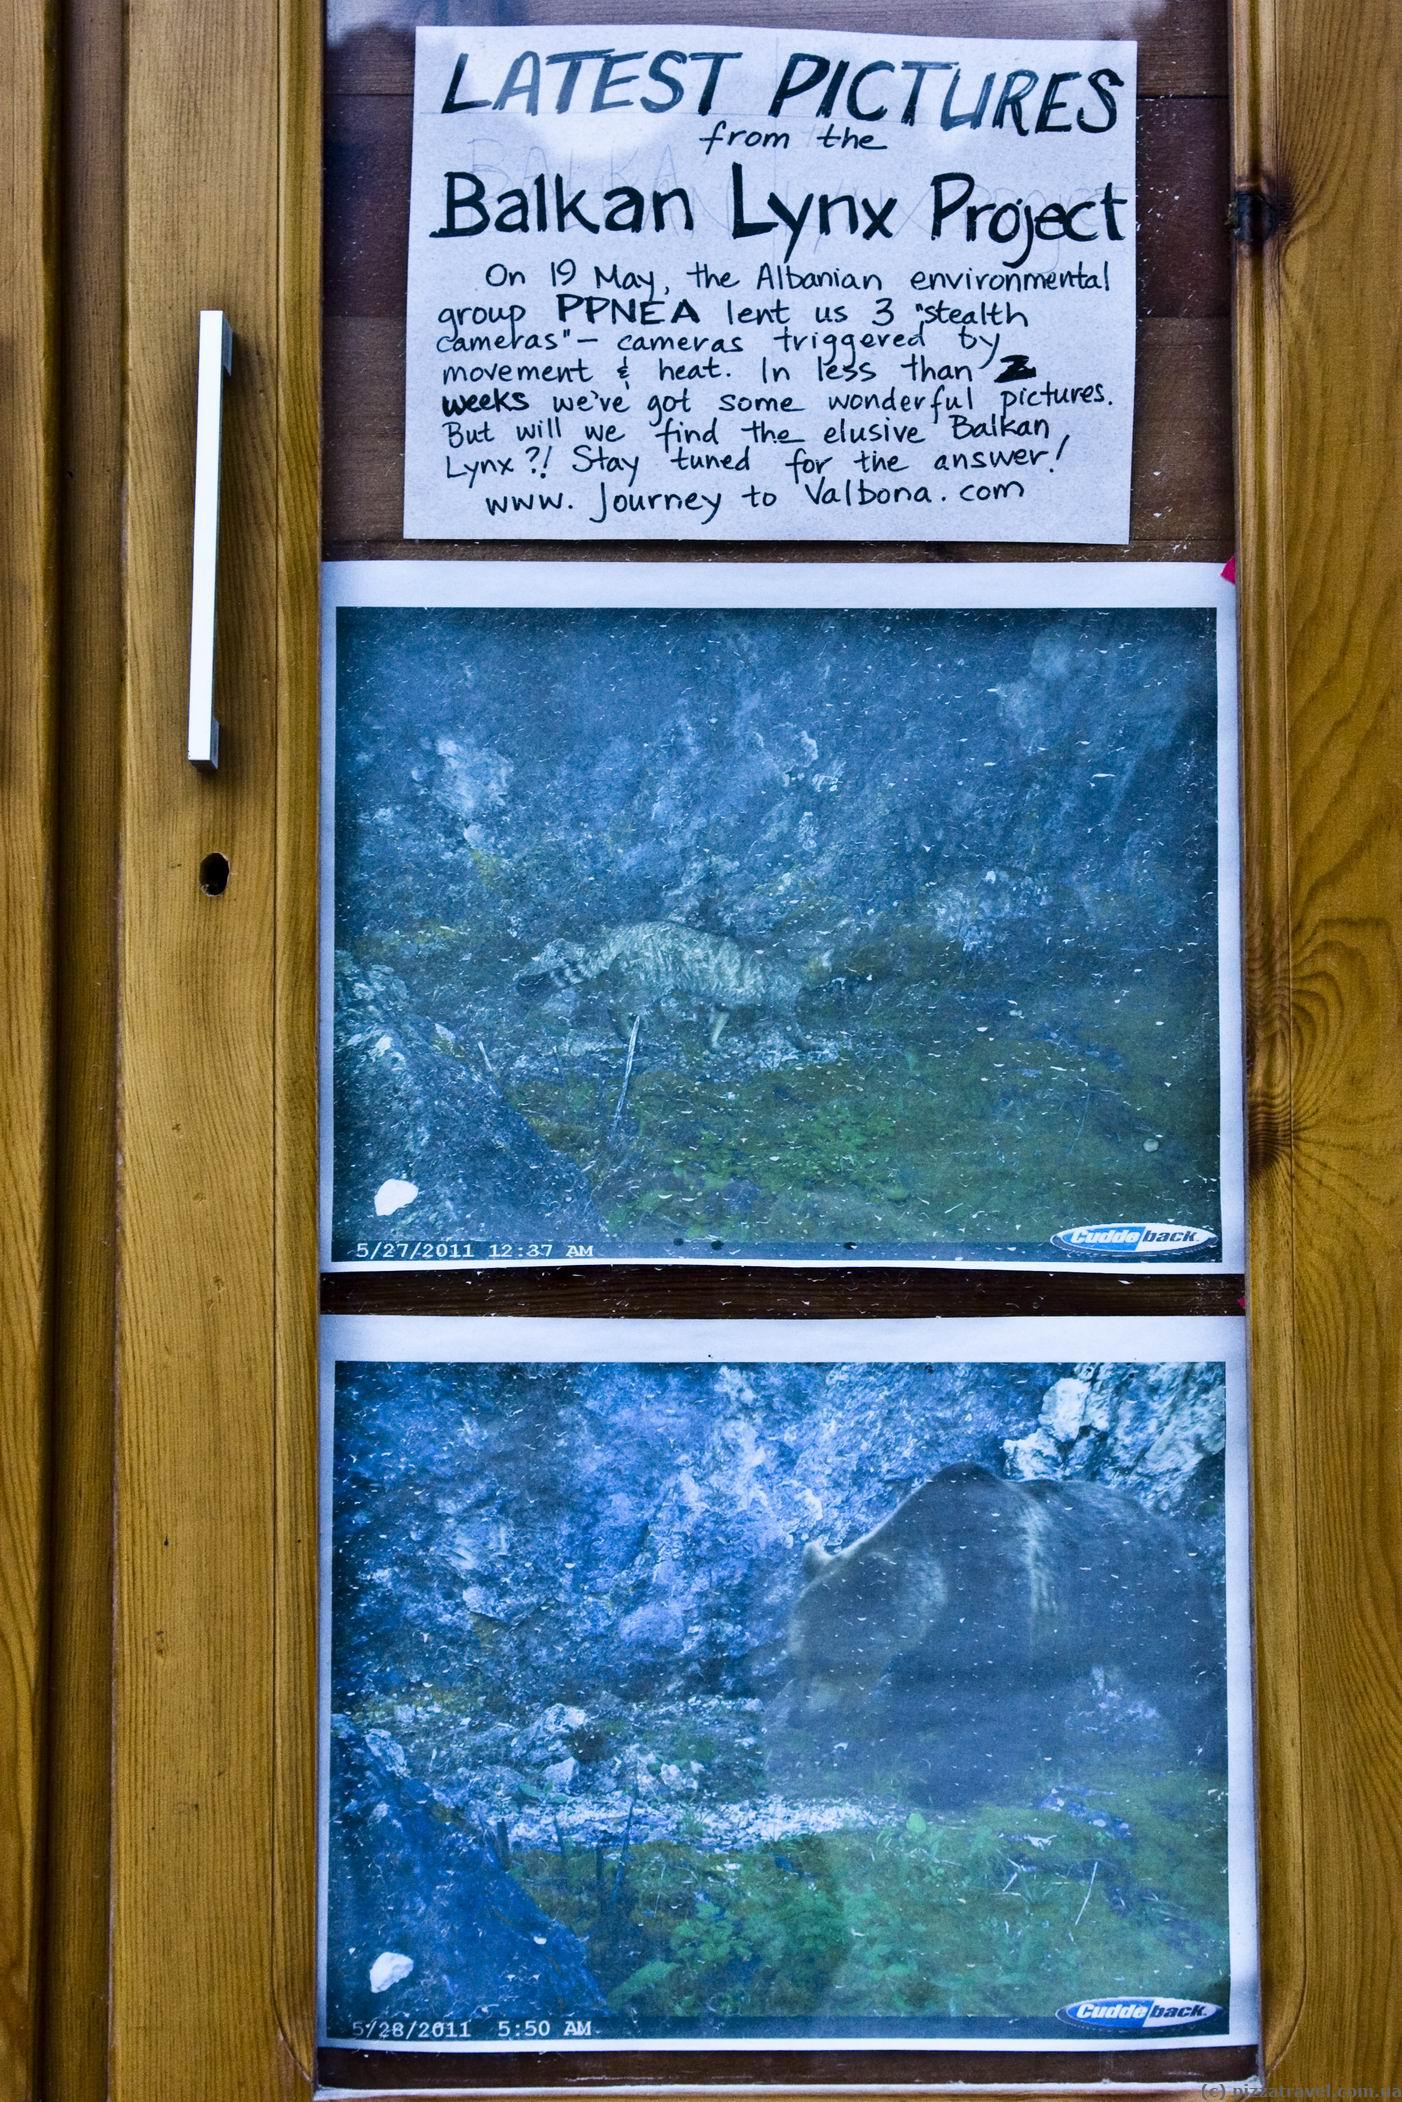 LATEST PICTURES
from the
Balkan Lynx Project
On 19 May, the Albanian environmental
group PPNEA lent us 3 "stealth
cameras" – cameras triggered by
movement & heat. In less than 2
weeks we've got some wonderful pictures.
But will we find the elusive Balkan
Lynx?! Stay tuned for the answer!
www. Journey to Valbona. com
5/27/2011 12:37 AM
Cuddeback.
5/28/2011 5:50 AM
Cuddeback.
(c) pizzatravel.com.ua